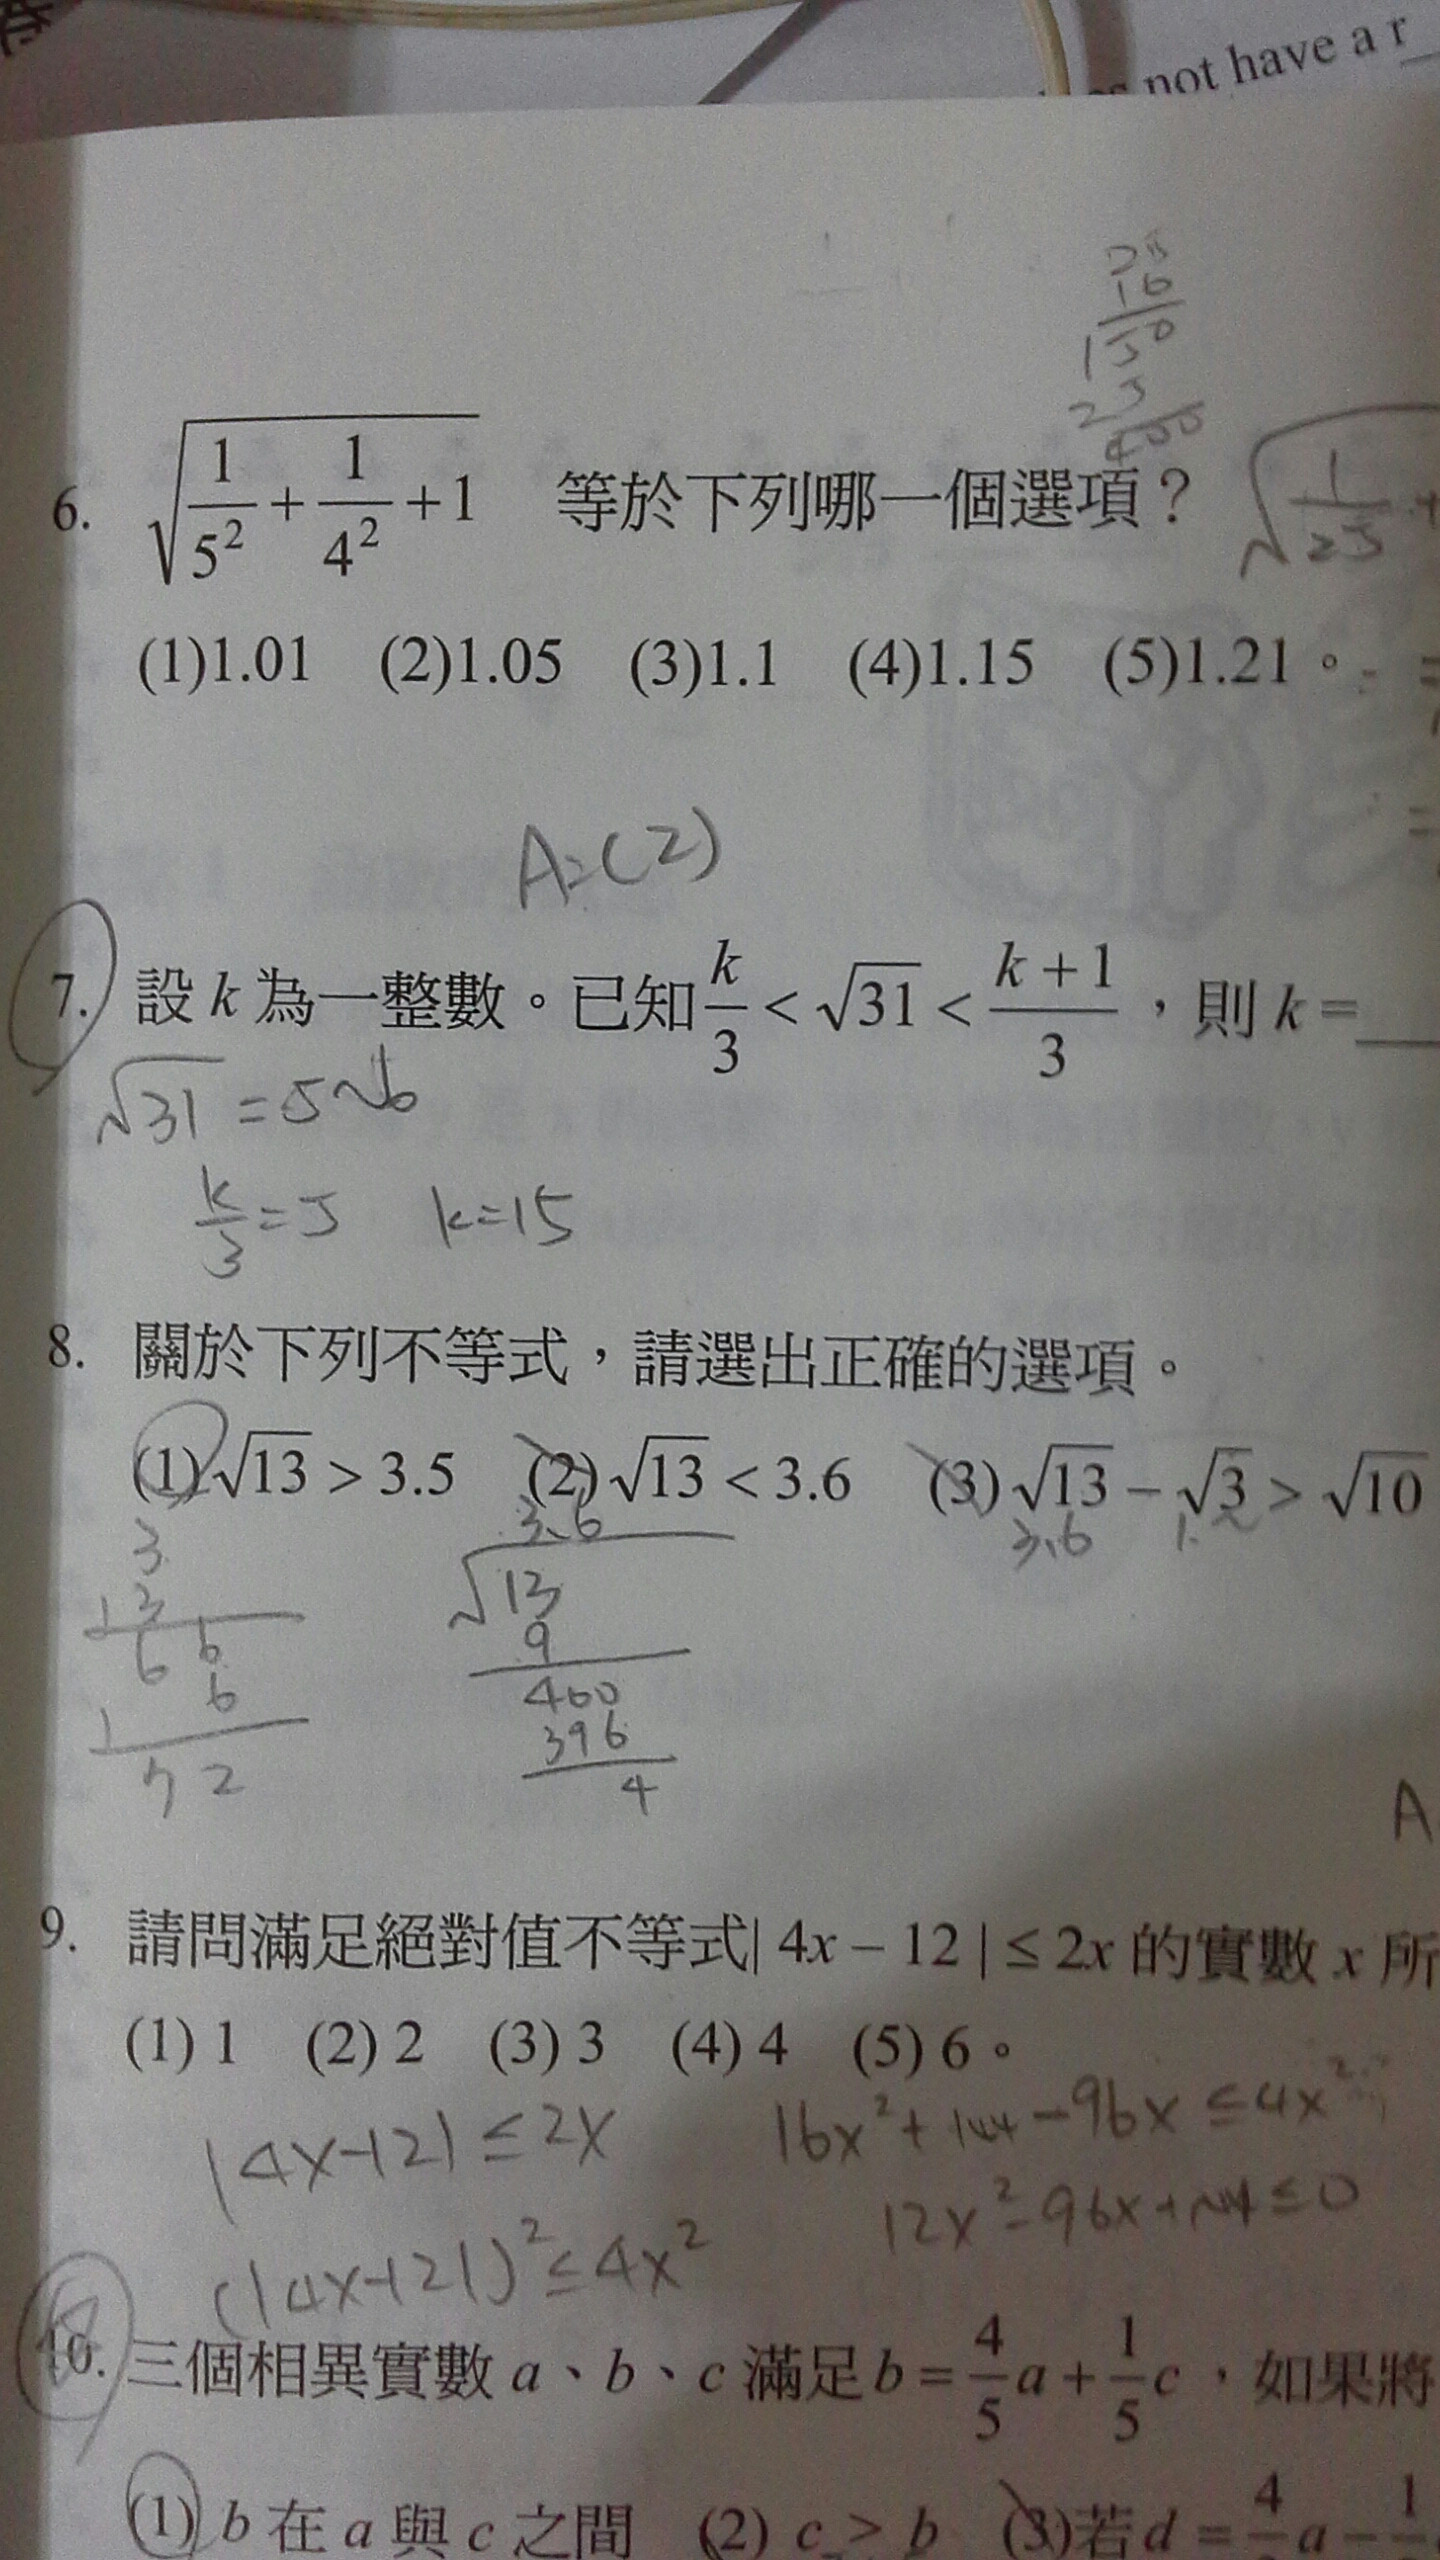 not have a r
25
16
150
25
400
6. √(1/5² + 1/4² + 1) 等於下列哪一個選項？ √(1/25 +
(1)1.01 (2)1.05 (3)1.1 (4)1.15 (5)1.21。
A=(2)
7. 設 k 為一整數。已知 k/3 < √31 < (k+1)/3，則 k =
√31 = 5~6
k/3 = 5 k=15
8. 關於下列不等式，請選出正確的選項。
(1) √13 > 3.5 (2) √13 < 3.6 (3) √13 − √3 > √10
3.6
3
3
6 6
6
7 2
3.6
√13
9
400
396
4
A
9. 請問滿足絕對值不等式| 4x − 12 | ≤ 2x 的實數 x 所
(1) 1 (2) 2 (3) 3 (4) 4 (5) 6。
|4x-12| ≤ 2x 16x² + 144 - 96x ≤ 4x²
(|4x-12|)² ≤ 4x² 12x² - 96x + 144 ≤ 0
10. 三個相異實數 a、b、c 滿足 b = 4/5 a + 1/5 c，如果將
(1) b 在 a 與 c 之間 (2) c > b (3)若 d =